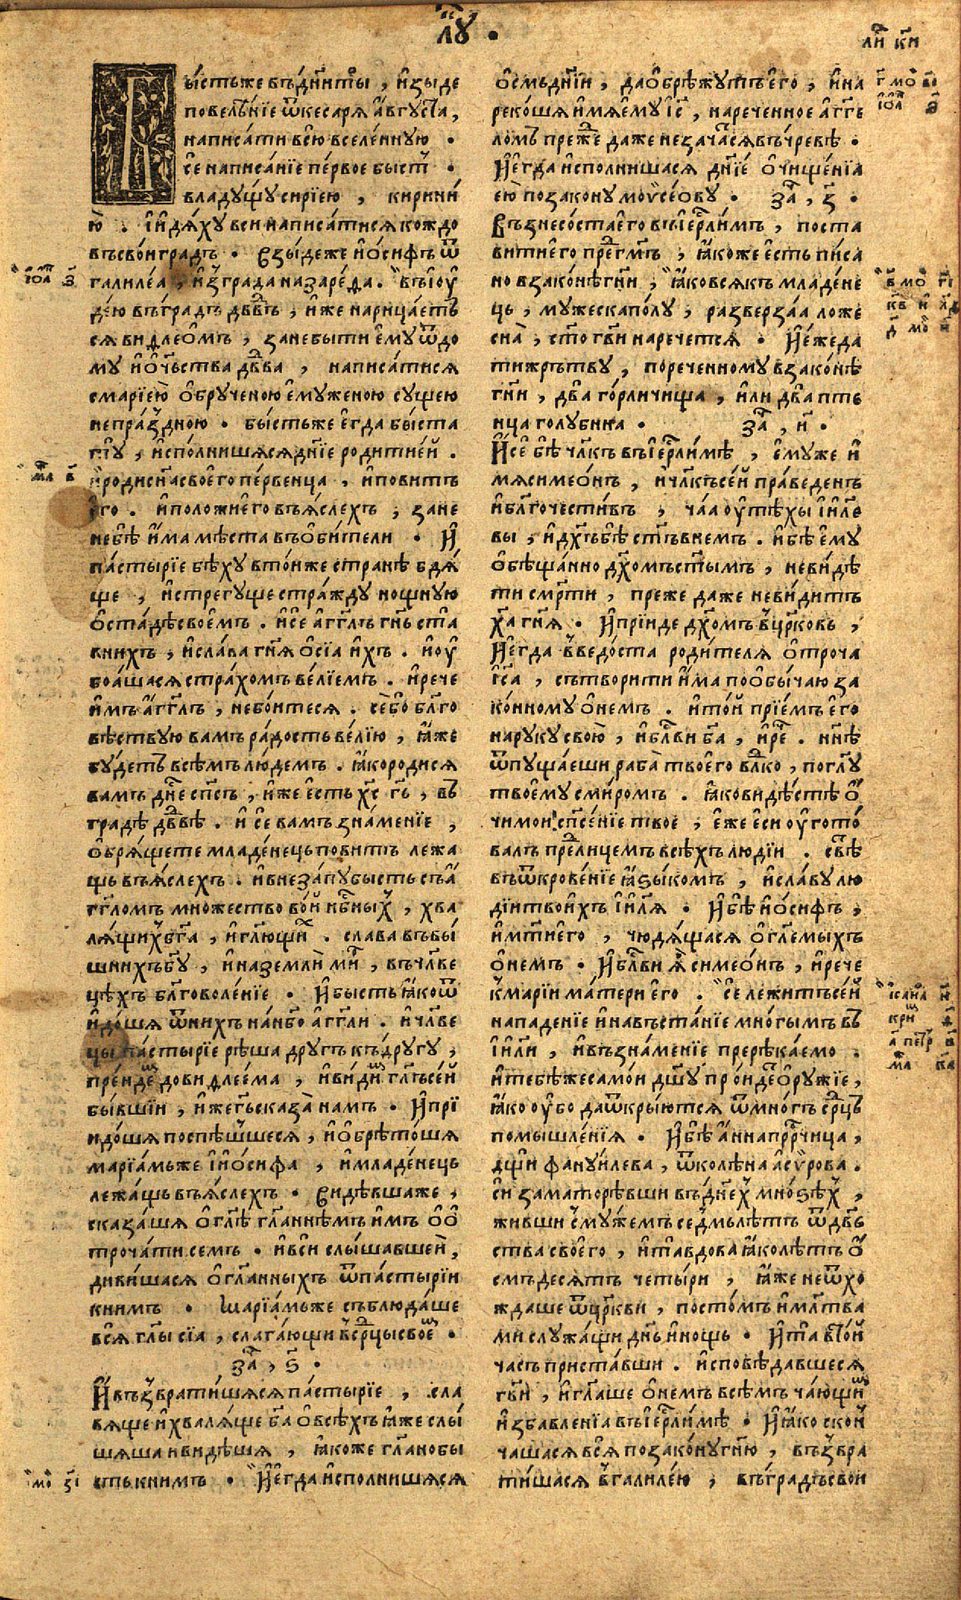 лꙋ҃ .
ли҃ к҃и
Бы́стьже въдн҃и ты̑ , и҆зыде
повелѣ́нїе ѿкесаря а҆́вгꙋста ,
написа́ти всю̀ вселе́ннꙋю .
се́ написа́нїе пе́рвое бысть .
владꙋ́щꙋ сирїею , кирині́
ю̀ . и҆идя́хꙋ вси написа́тися кождо
въсво́и градъ . Взы́деже ио́сифъ ѿ
галиле́а , и҆зграда назаре́да . въїю҆
де́ю въгра́дъ дв҃дъ , и҆́же нарица́етъ
ся виѳлео́мъ , занебы́ти е҆мꙋ ѿдо
мꙋ и҆о҆ч҃ьства дв҃да , написа́тися
смарі́ею о҆брꙋченою е҆мꙋженою сꙋщею
непра́здною . бы́стьже е҆гда бы́ста
тꙋ̀ , и҆спо́лнишася дн҃їе роди́тией .
и҆родисн҃а своего пе́рвенца , и҆пови́тъ
е҆го . и҆положи́ е҆го въя́слехъ , зане
небѣ̀ и҆́ма мѣ́ста въоби́тели . И҆
па́стырїе бѣ́хꙋ вто́йже странѣ̀ бдя́
ще , и҆стрегꙋ́ще стра́ждꙋ нощнꙋю
о҆ста́дѣ свое́мъ . и҆се́ а҆гг҃лъ гн҃ь ста
вни́хъ , и҆сла́ва гн҃я о҆сїа и҆́хъ . и҆оу
боа́шася стра́хомъ ве́лїемъ . и҆рече
и҆́мъ а҆́гг҃лъ , небо́итеся . се́бо бл҃го
вѣствꙋю ва́мъ ра́дость ве́лїю , ꙗ҆́же
бꙋ́детъ всѣ́мъ лю́демъ . ꙗ҆́ко роди́ся
ва́мъ дн҃е сп҃съ , и҆́же е҆сть хс҃ гь҃ , въ
гра́дѣ дв҃дѣ . и҆ се́ ва́мъ зна́менїе ,
о҆бря́щете младе́нець пови́тъ лежа
щь въя́слехъ . и҆внеза́пꙋ бы́сть съа҆́
гг҃ломъ мно́жество во́й нб҃ныхъ , хва
ля́щихъ бг҃а , и҆гл҃ющихъ . сла́ва въвы́
шнихъ бг҃ꙋ , и҆наземли̑ ми́ръ , въчл҃ве
цѣ́хъ бл҃говоле́нїе . И҆бы́сть ꙗ҆́ко ѿ
и҆до́шя ѿни́хъ нан҃бо а҆́гг҃ли . и҆чл҃ве
цы па́стырїе рѣ́ша дрꙋгъ къдрꙋ́гꙋ ,
преи́демъ дови́ѳлее́ма , и҆ви́димъ гл҃ъ се́й
бы́вшїи , и҆́же гь҃ сказа̀ на́мъ . И҆прї
идо́шя поспѣ́шшеся , и҆о҆брѣто́шя
марїа́мь же и҆ио́сифа , и҆младе́нець
лежа́щь въя́слехъ . Ви́дѣвшаже ,
сказа́шя о҆гл҃ѣ гл҃аннѣмъ и҆́мъ о҆о҆
троча́ти се́мъ . и҆вси́ слы́шавшеи ,
диви́шася о҆гл҃анныхъ ѿпа́стырїи
кни́мъ . Марїа́мьже съблюда́ше
вся̀ гл҃ы сїа̀ , слага́ющи въсрдцы свое́мъ .
за҃ , ѕ҃ .
И҆възврати́шяся па́стырїе , сла
вяще и҆хва́ляще бг҃а о҆всѣ́хъ ꙗ҆́же слы́
шяша и҆ви́дѣшя , ꙗ҆́коже гл҃ано бы́
сть кни́мъ . И҆е҆гда и҆спо́лнишяся
о҆смь дн҃їи , дао҆брѣ́жꙋтъ е҆го̀ , и҆на
реко́шя и҆́мя е҆мꙋ і҆с҃ , нарече́нное а҆́гг҃е
ломъ пре́жде да́же незача́ся въчре́вѣ .
И҆е҆гда и҆спо́лнишася дн҃їе о҆чище́нїа
ею̀ позако́нꙋ моѵсео́вꙋ . за҃ , з҃ .
Възнесо́ста е҆го̀ въі҆ерⷭ҇ли́мъ , поста
вити е҆го̀ прегⷣмъ , ꙗ҆́коже е҆́сть пи́са
но взако́нѣ гн҃и , ꙗ҆́ко вся́къ младе́не
ць , мꙋ́жеска по́лꙋ , разверза́а ложе
сна̀ , ст҃о гв҃и нарече́тся . И҆е́же да
ти же́рътвꙋ , порече́нномꙋ взако́нѣ
гн҃и , два́ го́рличища , и҆ли́ два̀ пте
нца голꙋби́на . за҃ , и҃ .
И҆се́ бѣ̀ чл҃къ въі҆ерⷭ҇ли́мѣ , е҆мꙋже и҆́
мя симео́нъ , и҆чл҃къ се́й пра́веденъ
и҆бл҃гочести́въ , ча́а оутѣ́хы і҆и҃ле
вы , и҆дх҃ъ бѣ̀ ст҃ъ внемъ . и҆бѣ̀ е҆мꙋ
о҆бѣща́нно дх҃омъ ст҃ымъ , неви́дѣ
ти сме́рти , пре́же да́же неви́дитъ
ха҃ гн҃я . И҆прїи́де дх҃омъ вцр҃ковь ,
И҆е҆гда̀ введо́ста роди́теля о҆троча
і҆с҃а , сътвори́ти и҆́ма поо҆бы́чаю за
ко́нномꙋ о҆не́мъ . и҆то́й прїе́мъ е҆го̀
нарꙋ́кꙋ свое́ю , и҆бл҃ви бг҃а , и҆ре́че . нн҃ѣ
ѿпꙋща́еши раба̀ твоего̀ вл҃дко , погл҃ꙋ
твоемꙋ сми́ромъ . ꙗ҆́ко ви́дѣстѣ о҆́
чи мои , сп҃се́нїе твоѐ , е҆́же е҆сѝ оугото́
валъ предъ лице́мъ всѣ́хъ лю́дїи . свѣ́тъ
въѿкрове́нїе ꙗ҆зы́комъ , и҆сла́вꙋ лю
дїи твои́хъ і҆и҃ля . И҆бѣ̀ ио́сифъ ,
и҆мт҃и е҆го̀ , чюдя́щася о҆гл҃емыхъ
о҆не́мъ . И҆бл҃ви я̀ симео́нъ , и҆рече
кмарі́и ма́тери е҆го̀ . се́ лежи́тъ се́й
нападе́нїе и҆навъста́нїе мно́гымъ въ
і҆и҃ли , и҆възна́менїе прерѣка́емо .
и҆тебѣ́же само́и дш҃ꙋ про́идетъ о҆рꙋ́жїе ,
ꙗ҆́ко оубо даѿкры́ются ѿмно́гъ срд҃цъ
помышле́нїя . И҆бѣ̀ а҆́нна прⷪ҇рчица ,
дщѝ фанꙋи́лева , ѿколѣ́на а҆си́рова .
си́ заматорѣ́вши въдн҃ехъ мно́зѣхъ ,
жи́вши смꙋ́жемъ се́дмь лѣ́тъ ѿдв҃ь
ства своего̀ , и҆та̀ вдова̀ ꙗ҆́ко лѣ́тъ о҆́
смъдеся́тъ четы́ри , ꙗ҆́же неѿхо
ждаше ѿцр҃кви , посто́мъ и҆мл҃тва
ми слꙋжа́щи дн҃ь и҆нощь . И҆та̀ вто́й
ча́съ приста́вши . и҆сповѣ́давшеся
гв҃и , и҆гл҃аше о҆не́мъ всѣ́мъ ча́ющимъ
и҆збавле́нїа въі҆ерⷭ҇ли́мѣ . И҆ ꙗ҆́ко скон
ча́шася вся̀ позако́нꙋ гн҃ю , възвра
ти́шася вгалиле́ю , въгра́дъ сво́и
і҆о҃а з҃
мѳ҃ в҃
мѳ҃ з҃і